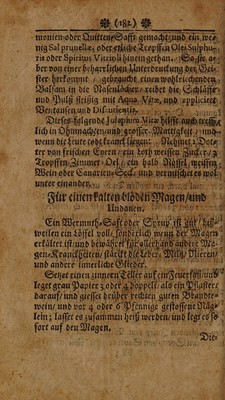 (182)
monien oder Quitten-Safft gemacht und ein we-
nig Sal prunellæ, oder etliche Tropffen Olei Sulphu-
ris oder Spiritus Vitrioli hinein gethan. So sie a-
ber von einer beharrlichen Unterdruckung der Gei-
ster herkommt, gebraucht einen wohlriechenden
Balsam in die Nasenlöcher, reibet die Schläffe
und Pulß fleissig mit Aqua Vitæ, und appliciert
Ventausen und
Dieses folgende Julapium Vitæ hilfft auch treff-
lich in Ohnmachten und grosser Mattigkeit, und
wenn die Leute todtkranck liegen: Nehmet 2. Dot-
ter von frischen Eyern, ein Loth weissen Zucker, 2
Tropffen Zimmet-Oel, ein halb Nössel weissen
Wein oder Canarien-Sect, und vermischet es wol
unter einander.
Für einen kalten blöden Magen, und
Undauen.
Ein Wermuth-Safft oder Syrup ist gut, biß-
weilen ein Löffel voll, sonderlich wenn der Magen
erkältet ist, und bewähret für allerhand andere Ma-
gen-Kranckheiten, stärckt die Leber, Miltz, Nieren,
und andere innerliche Glieder.
Setzet einen zinnern Teller auf ein Feuerfaß, und
leget grau Papier 3 oder 4 doppelt, als ein Pflaster
darauf, und giesset drüber rechten guten Brandte-
wein, und vor 4 oder 6 Pfennige gestossene Näg-
lein; lasset es zusammen heiß werden, und leget es so-
fort auf den Magen.
Die-